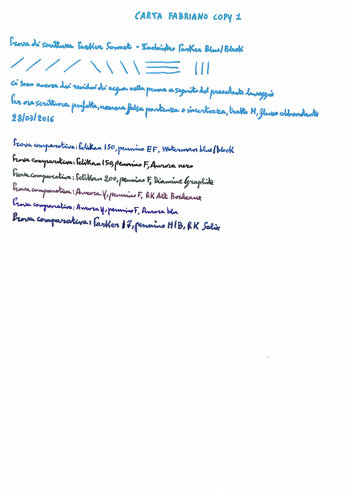 CARTA FABRIANO COPY 1
Prova di scrittura Parker Sonnet - Inchiostro Parker Blue/Black
Ci sono ancora dei residui di acqua nella penna a seguito del precedente lavaggio
Per ora scrittura perfetta, nessuna falsa partenza o incertezza, tratto M, flusso abbondante
28/03/2016
Prova comparativa: Pelikan 150, pennino EF, Waterman blue/black
Prova comparativa: Pelikan 150, pennino F, Aurora nero
Prova comparativa: Pelikan 200, pennino F, Diamine Graphite
Prova comparativa: Aurora, pennino F, RK Alt Bordeaux
Prova comparativa: Aurora, pennino F, Aurora blu
Prova comparativa: Parker 17, pennino M/B, RK Salix